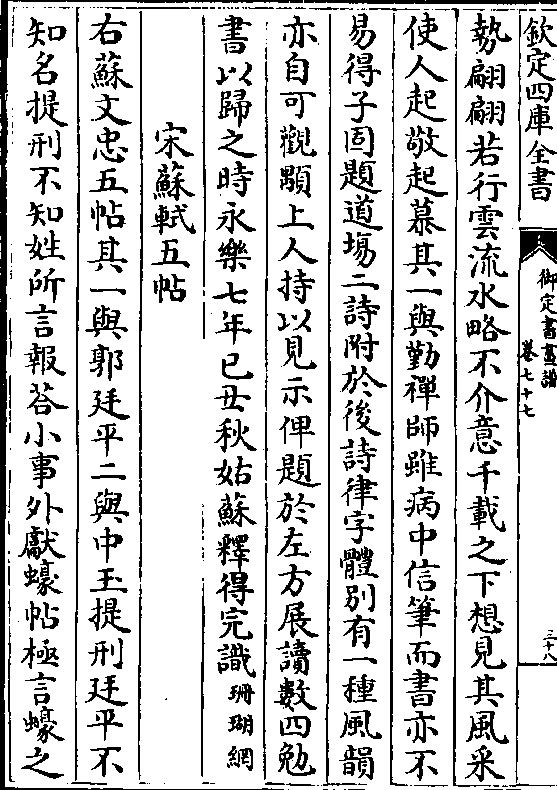 欽定四庫全書
御定書畫譜
卷七十七
三十八
勢翩翩若行雲流水略不介意千載之下想見其風采
使人起敬起慕其一與勤禪師雖病中信筆而書亦不
易得子固題道場二詩附於後詩律字體別有一種風韻
亦自可觀顒上人持以見示俾題於左方展讀數四勉
書以歸之時永樂七年己丑秋姑蘇釋得完識珊瑚網
宋蘇軾五帖
右蘇文忠五帖其一與郭廷平二與中玉提刑廷平不
知名提刑不知姓所言報荅小事外獻蠔帖極言蠔之